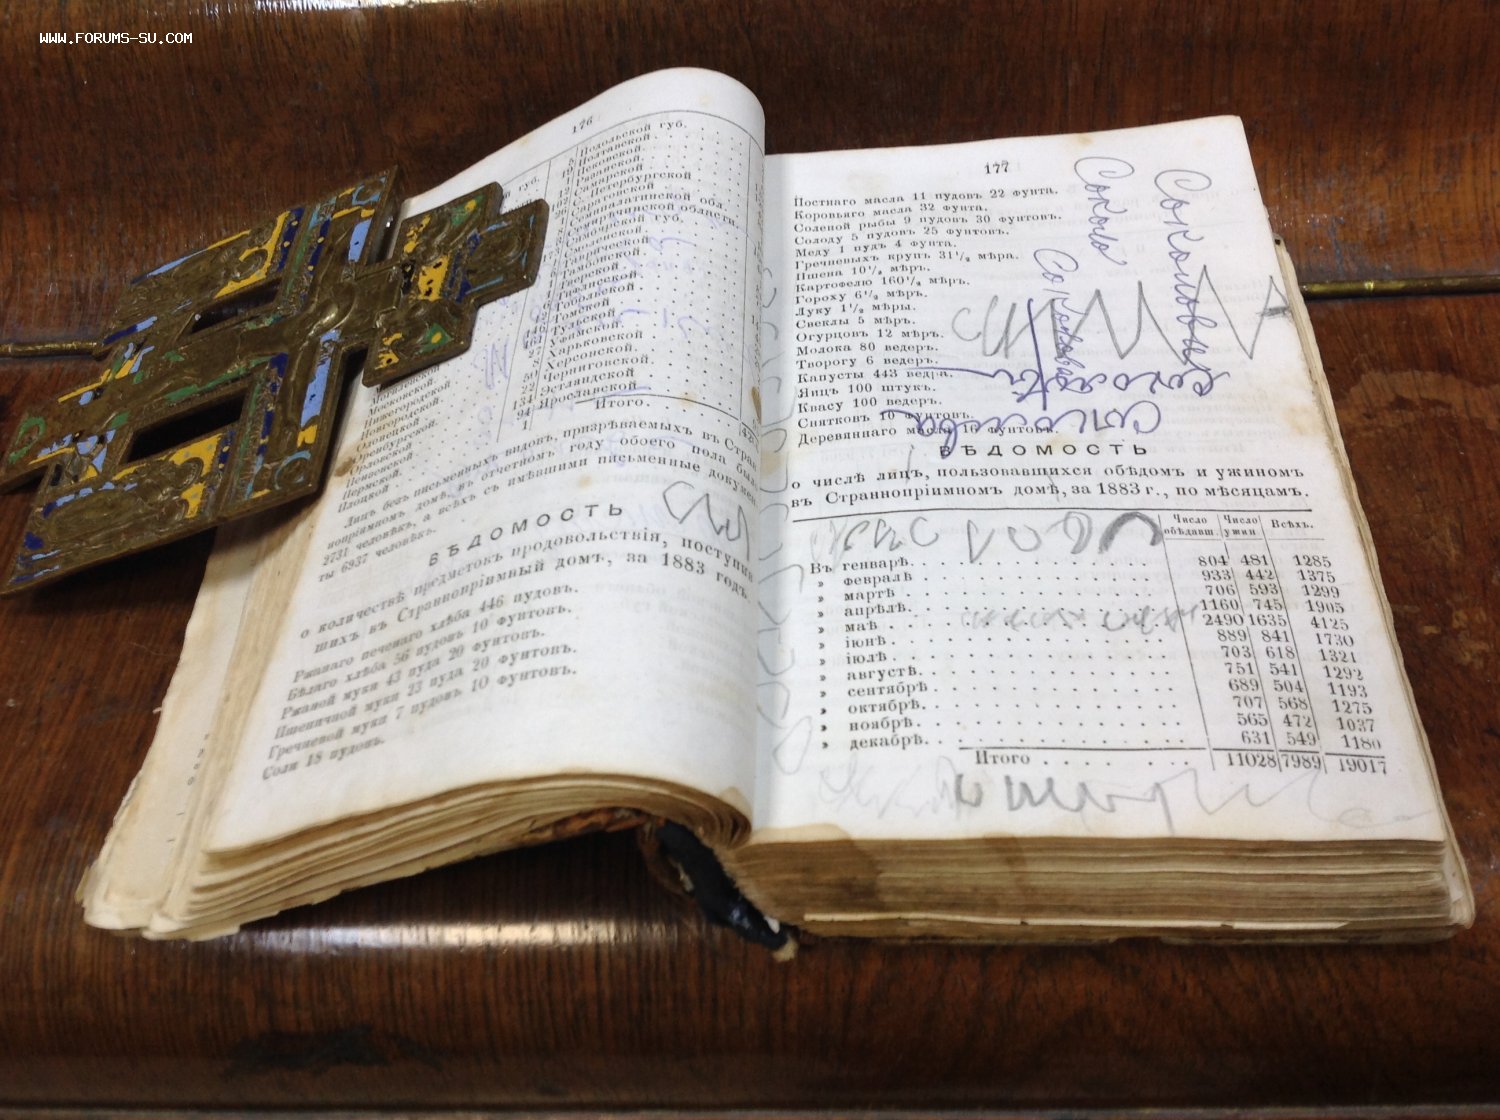 WWW.FORUMS-SU.COM
176
губ.
5 Подольской губ.
19 Полтавской
Псковской
Самарской
С.-Петербургской
Саратовской
Семипалатинской обл.
Семиречинской области
Симбирской губ.
Смоленской
Таврической
Тамбовской
Тверской
Тифлисской
Тобольской
Томской
Тульской
Уфимской
Харьковской
Херсонской
Черниговской
Эстляндской
Ярославской
Итого
Московской
Нижегородской
Новгородской
Олонецкой
Оренбургской
Орловской
Пензенской
Пермской
Плоцкой
Лицъ безъ письменныхъ видовъ, призрѣваемыхъ въ Стран
нопріимномъ домѣ, въ отчетномъ году обоего пола был
2731 человѣкъ, а всѣхъ съ имѣвшими письменные докумен
ты 6937 человѣкъ.
ВѢДОМОСТЬ
о количествѣ предметовъ продовольствія, поступив
шихъ въ Страннопріимный домъ, за 1883 годъ.
Ржанаго печенаго хлѣба 446 пудовъ.
Бѣлаго хлѣба 56 пудовъ 10 фунтовъ.
Ржаной муки 43 пуда 20 фунтовъ.
Пшеничной муки 23 пуда 20 фунтовъ.
Гречневой муки 7 пудовъ 10 фунтовъ.
Соли 18 пудовъ.
177
Постнаго масла 11 пудовъ 22 фунта.
Коровьяго масла 32 фунта.
Соленой рыбы 9 пудовъ 30 фунтовъ.
Солоду 5 пудовъ 25 фунтовъ.
Меду 1 пудъ 4 фунта.
Гречневыхъ крупъ 31½ мѣра.
Пшена 10½ мѣръ.
Картофелю 160½ мѣръ.
Гороху 6½ мѣръ.
Луку 1½ мѣры.
Свеклы 5 мѣръ.
Огурцовъ 12 мѣръ.
Молока 80 ведеръ.
Творогу 6 ведеръ.
Капусты 443 ведра.
Яицъ 100 штукъ.
Квасу 100 ведеръ.
Святковъ 10 фунтовъ.
Деревяннаго масла 10 фунтовъ.
ВѢДОМОСТЬ
о числѣ лицъ, пользовавшихся обѣдомъ и ужиномъ
въ Страннопріимномъ домѣ, за 1883 г., по мѣсяцамъ.
Число обѣдавш. Число ужин Всѣхъ.
Въ генварѣ. 804 481 1285
» февралѣ 933 442 1375
» мартѣ 706 593 1299
» апрѣлѣ. 1160 745 1905
» маѣ 2490 1635 4125
» іюнѣ 889 841 1730
» іюлѣ 703 618 1321
» августѣ 751 541 1292
» сентябрѣ 689 504 1193
» октябрѣ. 707 568 1275
» ноябрѣ 565 472 1037
» декабрѣ. 631 549 1180
Итого 11028 7989 19017